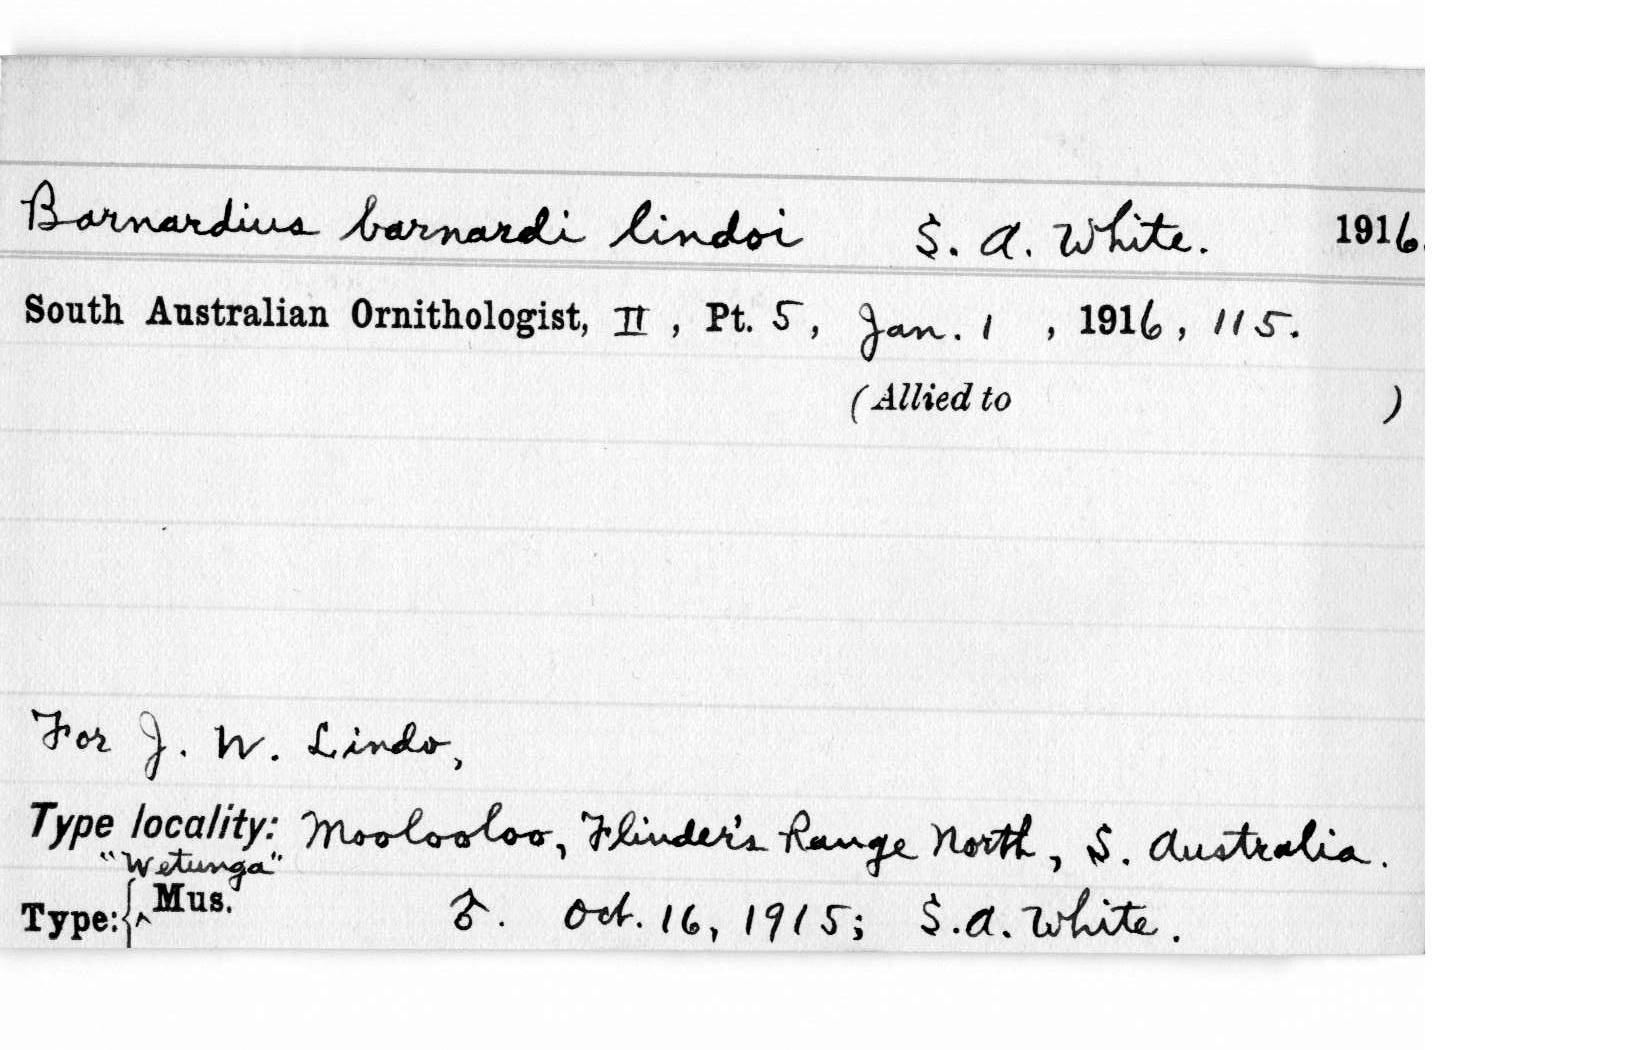 Barnardius barnardi lindoi S. A. White. 1916.
South Australian Ornithologist, II, Pt. 5, Jan. 1, 1916, 115.
(Allied to )
For J. W. Lindo,
Type locality: Moolooloo, Flinder's Range North, S. Australia.
"Wetunga"
Type:{^ Mus. ♂. Oct. 16, 1915; S. A. White.